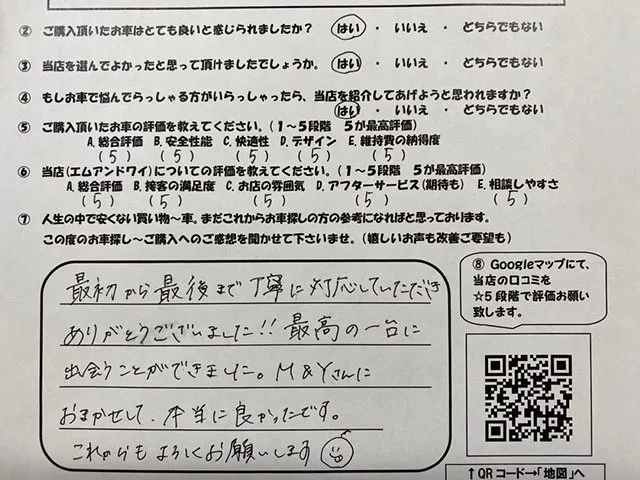 ② ご購入頂いたお車はとても良いと感じられましたか? はい ・ いいえ ・ どちらでもない
③ 当店を選んでよかったと思って頂けましたでしょうか。 はい ・ いいえ ・ どちらでもない
④ もしお車で悩んでらっしゃる方がいらっしゃったら、当店を紹介してあげようと思われますか?
はい ・ いいえ ・ どちらでもない
⑤ ご購入頂いたお車の評価を教えてください。(1～5段階 5が最高評価)
A.総合評価 B.安全性能 C.快適性 D.デザイン E.維持費の納得度
(5) (5) (5) (5) (5)
⑥ 当店(エムアンドワイ)についての評価を教えてください。(1～5段階 5が最高評価)
A.総合評価 B.接客の満足度 C.お店の雰囲気 D.アフターサービス(期待も) E.相談しやすさ
(5) (5) (5) (5) (5)
⑦ 人生の中で安くない買い物～車。まだこれからお車探しの方の参考になればと思っております。
この度のお車探し～ご購入へのご感想を聞かせて下さいませ。(嬉しいお声も改善ご要望も)
最初から最後まで丁寧に対応していただき
ありがとうございました!! 最高の一台に
出会うことができました。M&Yさんに
おまかせして、本当に良かったです。
これからもよろしくお願いします
⑧ Googleマップにて、
当店の口コミを
☆5段階で評価お願い
致します。
↑QRコード→「地図」へ